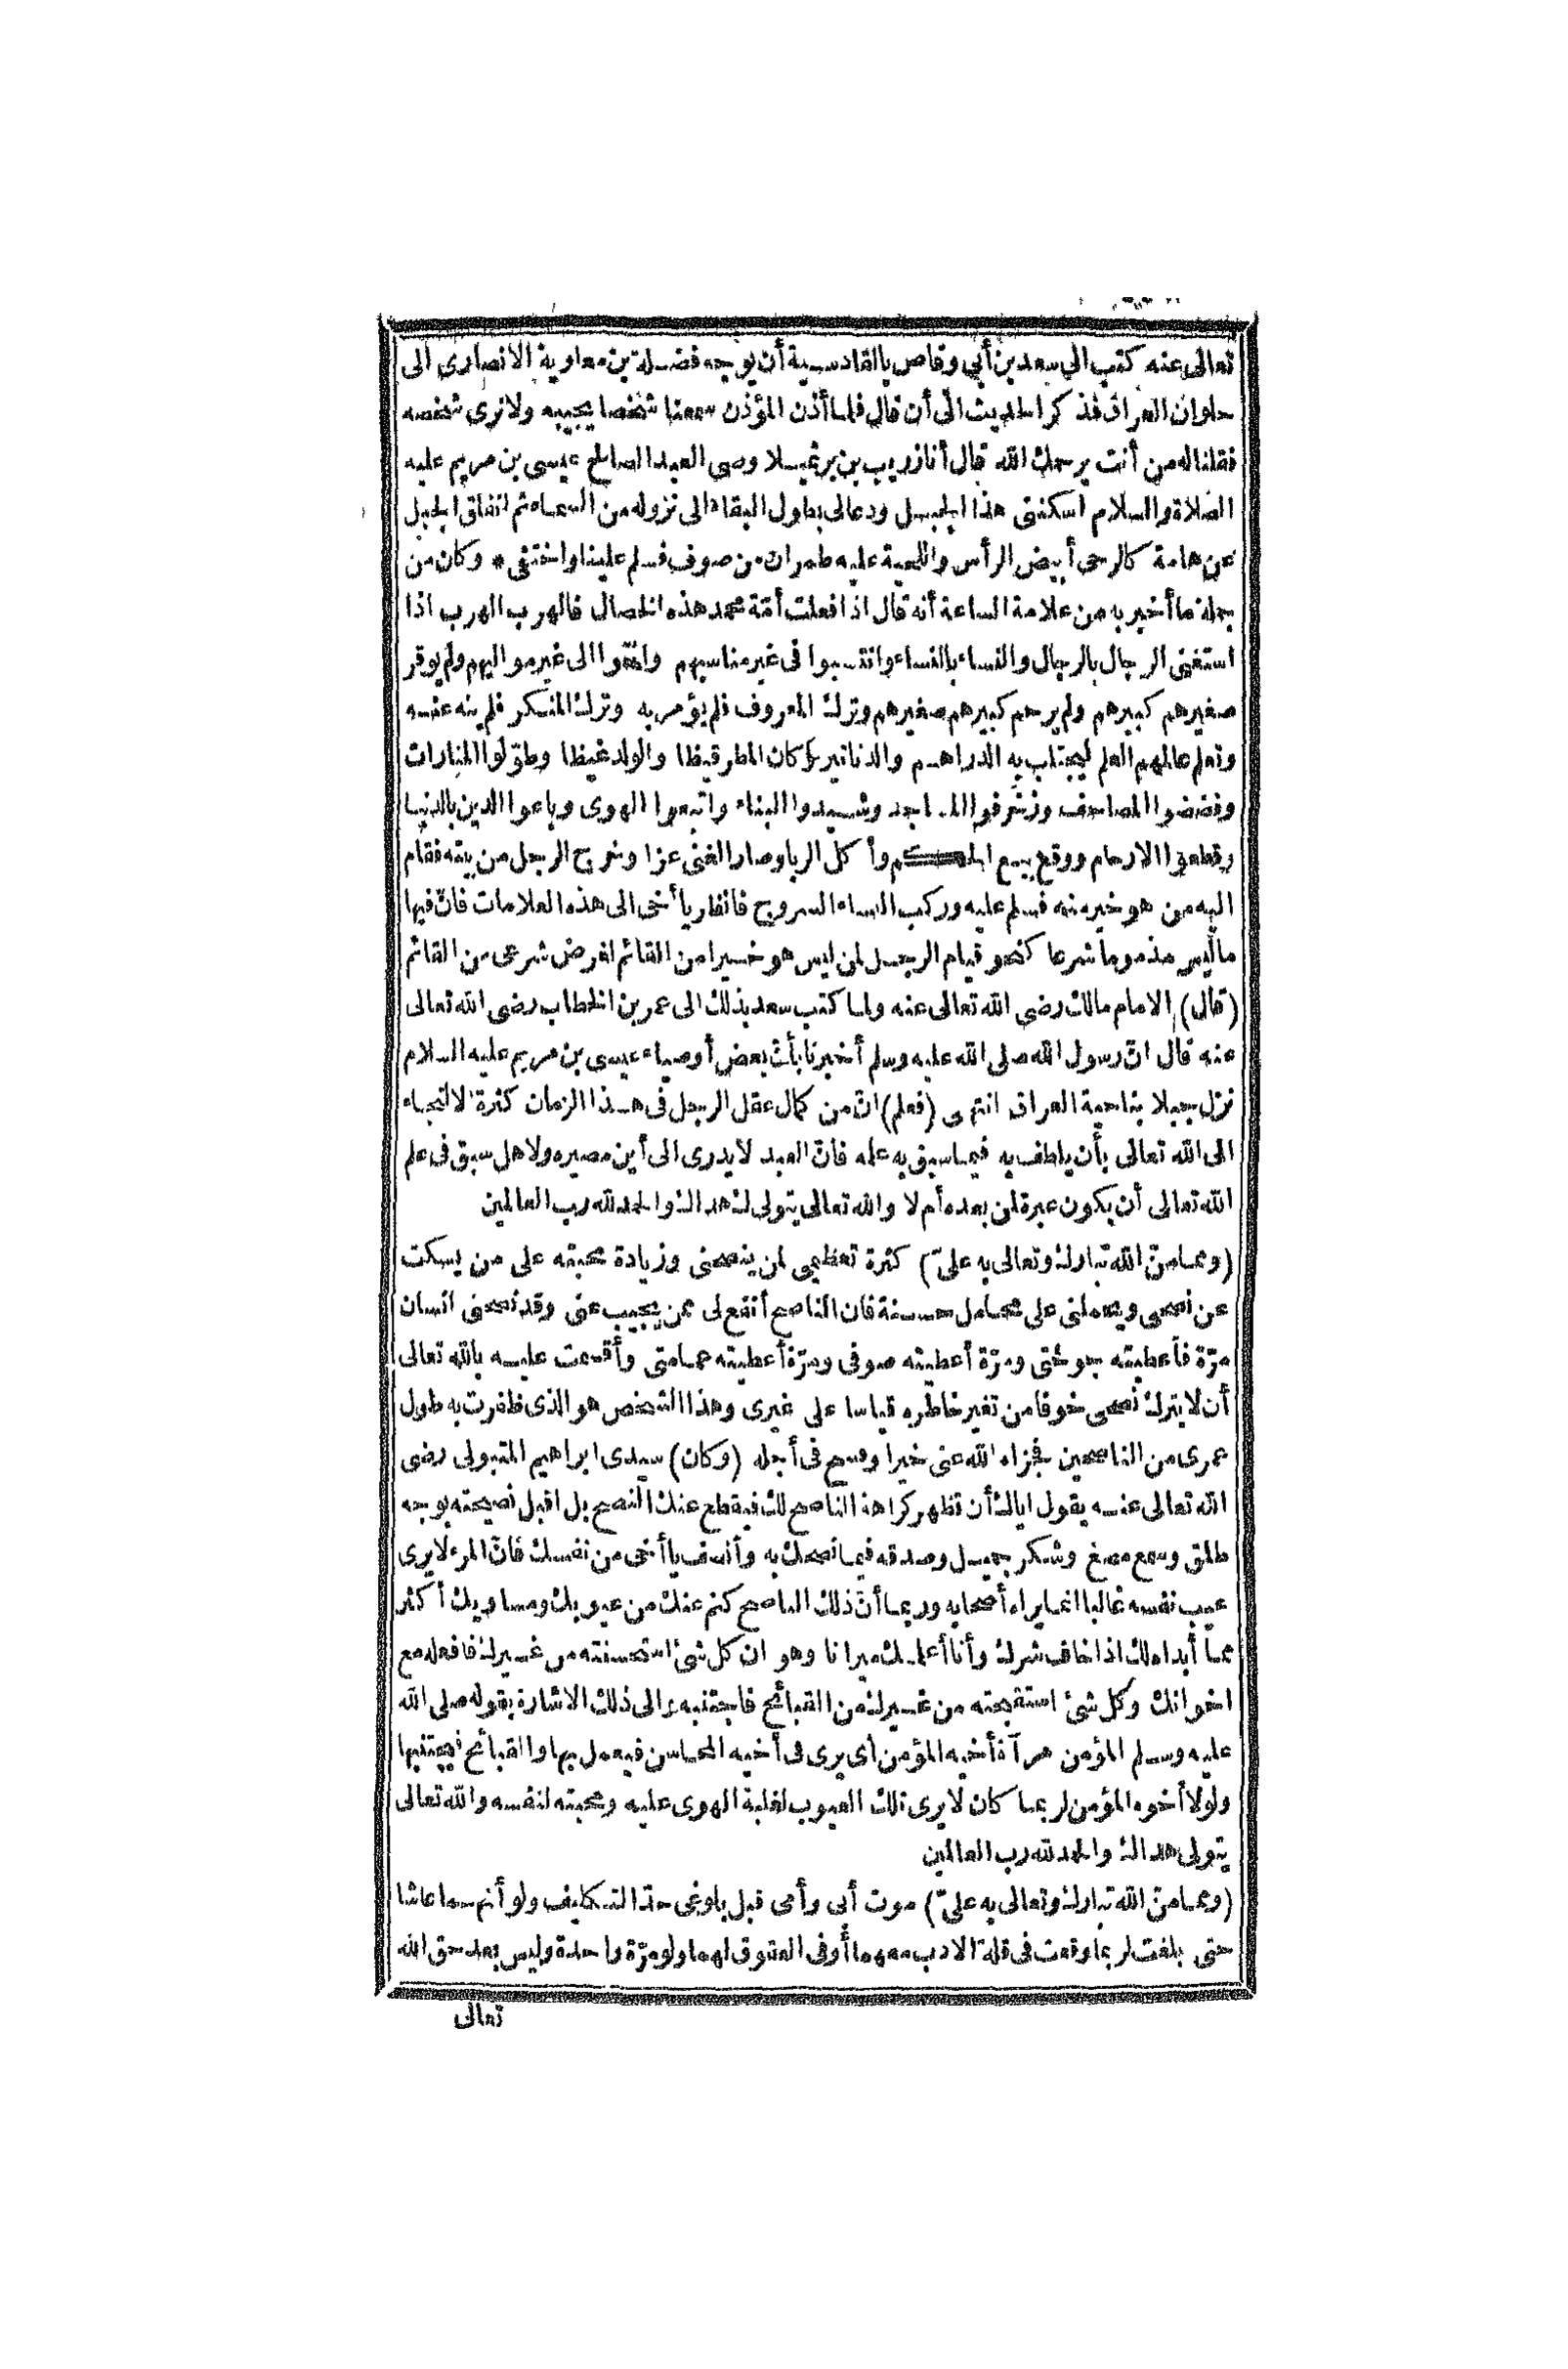 تعالى عنه كتب الى سعد بن أبي وقاص بالقادسية أن يوجه فضلة بن معاوية الانصارى الى
حلوان العراق فذكر الحديث الى أن قال فلما أذن المؤذن سمعنا شخصا يجيبه ولا نرى شخصه
فقلنا له من أنت يرحمك الله قال أنا زريب بن برثميلا وصى العبد الصالح عيسى بن مريم عليه
الصلاة والسلام اسكننى هذا الجبل ودعا لى بطول البقاء الى نزوله من السماء ثم انفلق الجبل
عن هامة كالرحى أبيض الرأس واللحية عليه طمران من صوف فسلم علينا واختفى * وكان من
جملة ما أخبر به من علامة الساعة أنه قال اذا فعلت أمّة محمد هذه الخصال فالهرب الهرب اذا
استغنى الرجال بالرجال والنساء بالنساء وانتسبوا فى غير مناسبهم وانتموا الى غير مواليهم ولم يوقر
صغيرهم كبيرهم ولم يرحم كبيرهم صغيرهم وترك المعروف فلم يؤمر به وترك المنكر فلم ينه عنه
وتعلم عالمهم العلم ليجتلب به الدراهم والدنانير وكان المطر قيظا والولد غيظا وطوّلوا المنارات
وفضضوا المصاحف وزخرفوا المساجد وشيدوا البناء واتبعوا الهوى وباعوا الدين بالدنيا
وقطعوا الارحام ووقع بيع الحكم وأكل الربا وصار الغنى عزا وخرج الرجل من بيته فقام
اليه من هو خير منه فسلم عليه وركب النساء السروج فانظر يا أخى الى هذه العلامات فانّ فيها
ما ليس مذموما شرعا كنحو قيام الرجل لمن ليس هو خيرا من القائم لغرض شرعى من القائم
(قال) الامام مالك رضى الله تعالى عنه ولما كتب سعد بذلك الى عمر بن الخطاب رضى الله تعالى
عنه قال انّ رسول الله صلى الله عليه وسلم أخبرنا بأنّ بعض أوصياء عيسى بن مريم عليه السلام
نزل جبلا بناحية العراق انتهى (فعلم) انّ من كمال عقل الرجل فى هذا الزمان كثرة الالتجاء
الى الله تعالى بأن يلطف به فيما سبق به علمه فانّ العبد لا يدرى الى أين مصيره ولا هل سبق فى علم
الله تعالى أن يكون عبرة لمن بعده أم لا والله تعالى يتولى هداك والحمد لله رب العالمين
(ومما منّ الله تبارك وتعالى به علىّ) كثرة تعظيمى لمن ينصحنى وزيادة محبته على من يسكت
عن نصحى ويحملنى على محامل حسنة فان الناصح أنفع لى ممن يجيب عنى وقد نصحنى انسان
مرّة فأعطيته جوختى ومرّة أعطيته صوفى ومرّة أعطيته عمامتى وأقسمت عليه بالله تعالى
أن لا يترك نصحى خوفا من تغير خاطره قياسا على غيرى وهذا الشخص هو الذى ظفرت به طول
عمرى من الناصحين فجزاه الله عنى خيرا وفسح فى أجله (وكان) سيدى ابراهيم المتبولى رضى
الله تعالى عنه يقول اياك أن تظهر كراهة الناصح لك فيقطع عنك النصح بل اقبل نصيحته بوجه
طلق وسمع مصغ وشكر جميل وصدقه فيما نصحك به وأنصف يا أخى من نفسك فانّ المرء لا يرى
عيب نفسه غالبا انما يراه أصحابه وربما أنّ ذلك الناصح كتم عنك من عيوبك ومساويك أكثر
مما أبداه لك اذا خاف شرك وأنا أعلمك ميزانا وهو ان كل شئ استحسنته من غيرك فافعله مع
اخوانك وكل شئ استقبحته من غيرك من القبائح فاجتنبه والى ذلك الاشارة بقوله صلى الله
عليه وسلم المؤمن مرآة أخيه المؤمن أى يرى فى أخيه المحاسن فيعمل بها والقبائح فيجتنبها
ولولا أخوه المؤمن لربما كان لا يرى تلك العيوب لغلبة الهوى عليه ومحبته لنفسه والله تعالى
يتولى هداك والحمد لله رب العالمين
(ومما منّ الله تبارك وتعالى به علىّ) موت أبى وأمى قبل بلوغى حدّ التكليف ولو أنهما عاشا
حتى بلغت لربما وقعت فى قلة الادب معهما أو فى العقوق لهما ولو مرّة واحدة وليس بعد حق الله
تعالى